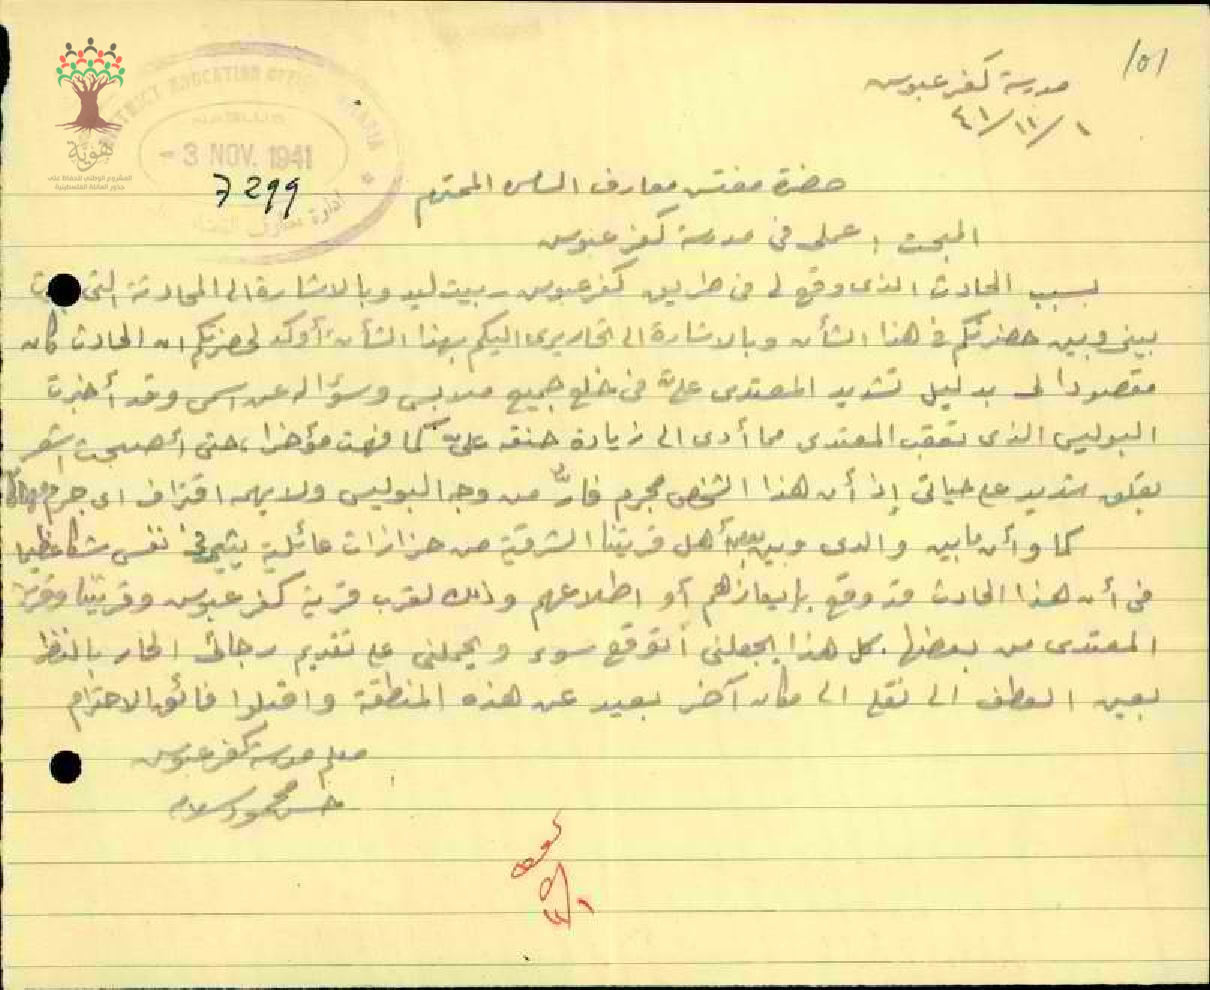 ١٥١
مدرسة كفر عبوس
١/١١/٤١
DISTRICT EDUCATION OFFICE SAMARIA
NABLUS
- 3 NOV. 1941
إدارة معارف
7299
هوية
المشروع الوطني للحفاظ على
جذور العائلة الفلسطينية
حضرة مفتش معارف السامرة المحترم
المبحث : عملي في مدرسة كفر عبوس
بسبب الحادث الذي وقع لي في طريق كفر عبوس - بيت ليد وبالاشارة الى المحادثة التي
بيني وبين حضرتكم في هذا الشأن وبالاشارة الى تحاريري اليكم بهذا الشأن أوكد لحضرتكم ان الحادث كان
مقصوداً لي بدليل تشديد المعتدي عليّ في خلع جميع ملابسي وسؤاله عن اسمي وقد أخبرت
البوليس الذي تعقب المعتدي مما أدى الى زيادة حنقه عليّ كما فهمت مؤخرا، حتى أصبحت اشعر
بقلق شديد على حياتي إذ أن هذا الشخص مجرم فارّ من وجه البوليس ولا يهمه اقتراف اي جرم مهما كان
كما وأن ما بين والدي وبين بعض أهل قريتنا الشرقية من حزازات عائلية يثير في نفسي شكا عظيما
في أن هذا الحادث قد وقع بإيعازهم أو اطلاعهم وذلك لقرب قرية كفر عبوس وقريتنا وقرية
المعتدي من بعضها. كل هذا يجعلني أتوقع سوء ويحملني على تقديم رجائي الحار بالنظر
بعين العطف الى نقلي الى مكان آخر بعيد عن هذه المنطقة واقبلوا فائق الاحترام
معلم مدرسة كفر عبوس
حسن محمود سلامه